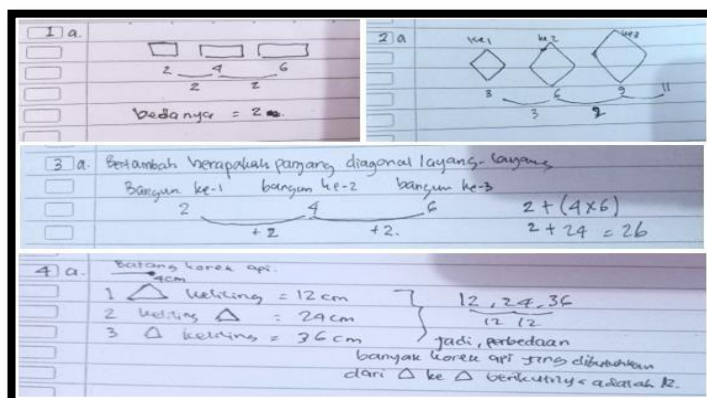 1 a.
2 4 6
2 2
bedanya = 2
2 a
ke 1 ke 2 ke 3
3 6 9 11
3 2
3 a. Bertambah berapakah panjang diagonal layang-layang
Bangun ke-1 bangun ke-2 bangun ke-3
2 4 6 2 + (4x6)
+2 +2. 2 + 24 = 26
4 a. Batang korek api.
4cm
1 △ keliling = 12 cm
2 keliling △ = 24 cm
3 △ keliling = 36 cm
12, 24, 36
12 12
jadi, perbedaan
banyak korek api yang dibutuhkan
dari △ ke △ berikutnya adalah 12.